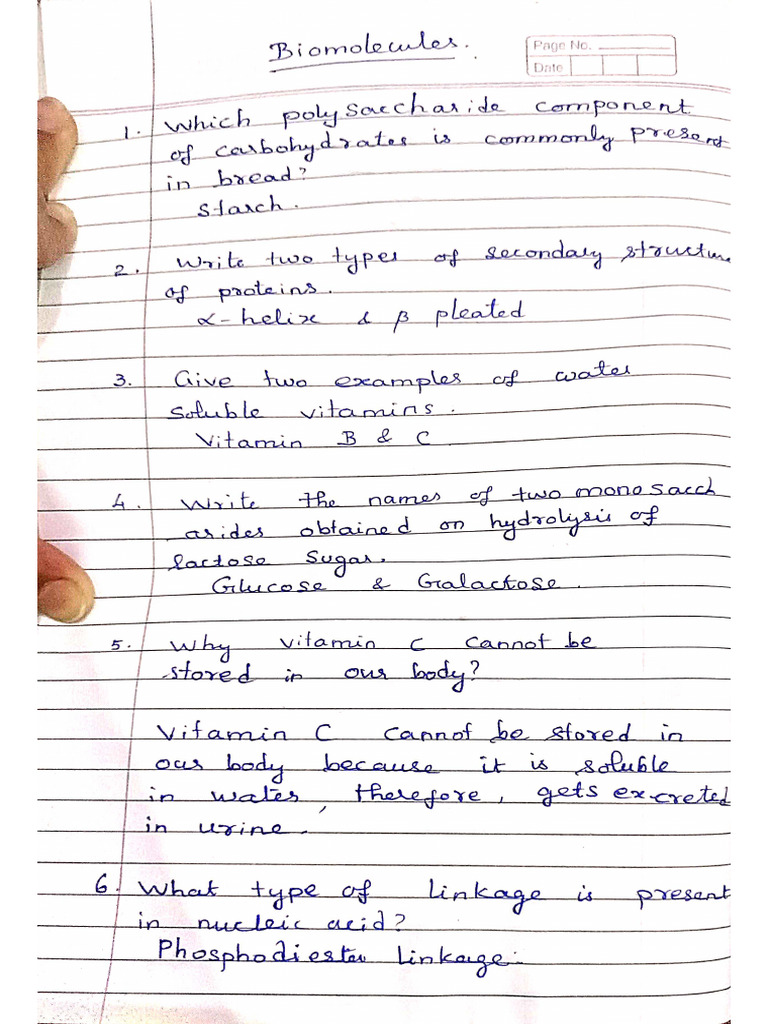 Biomolecules.
Page No.
Date
1. Which polysaccharide component
of carbohydrates is commonly present
in bread?
Starch.
2. Write two types of secondary structure
of proteins.
α-helix & β pleated
3. Give two examples of water
soluble vitamins.
Vitamin B & C
4. Write the names of two monosacch
arides obtained on hydrolysis of
lactose sugar.
Glucose & Galactose.
5. Why vitamin C cannot be
stored in our body?
Vitamin C cannot be stored in
our body because it is soluble
in water, therefore, gets excreted
in urine.
6. What type of linkage is present
in nucleic acid?
Phosphodiester linkage.